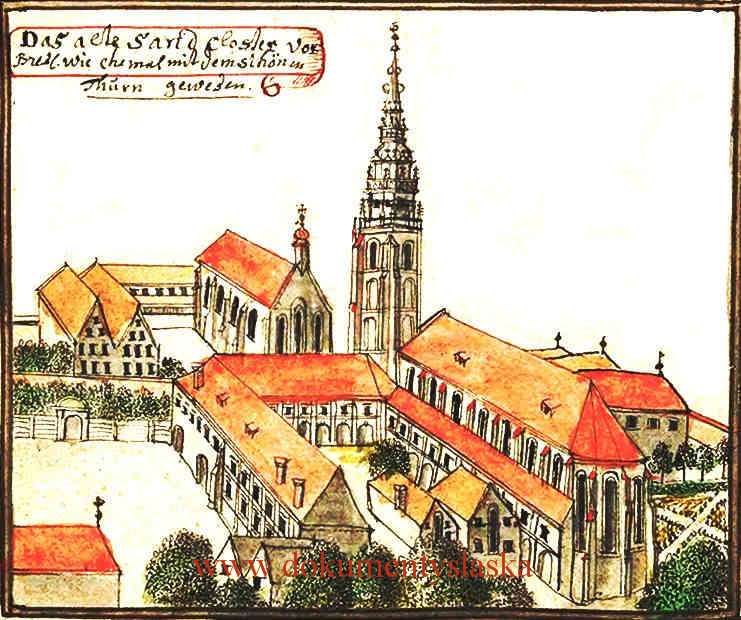 Das alte Sand Closter vor
Bresl. wie ehemal mit dem schönen
Thurn gewesen.
www.dokumentyslaska